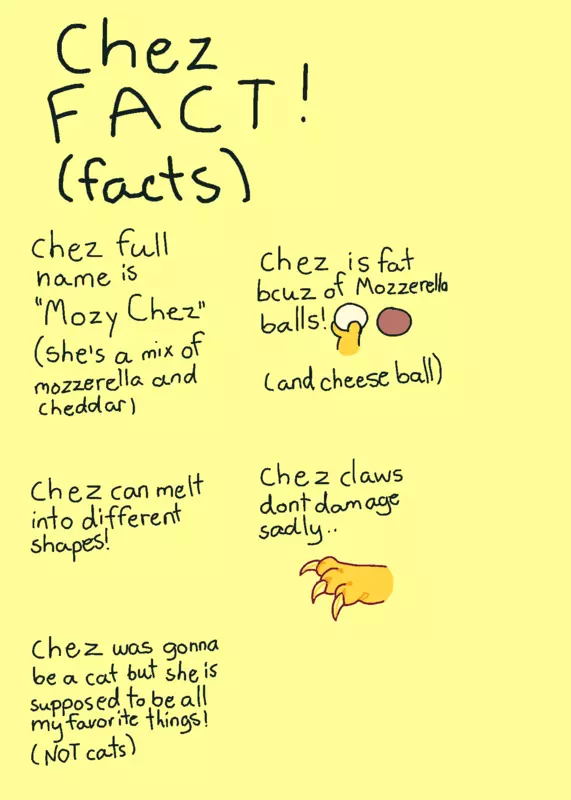 Chez
FACT!
(facts)
Chez full
name is
"Mozy Chez"
(she's a mix of
mozzerella and
cheddar)
Chez is fat
bcuz of Mozzerella
balls!
(and cheese ball)
Chez can melt
into different
shapes!
Chez claws
dont damage
sadly..
Chez was gonna
be a cat but she is
supposed to be all
my favorite things!
(NOT cats)